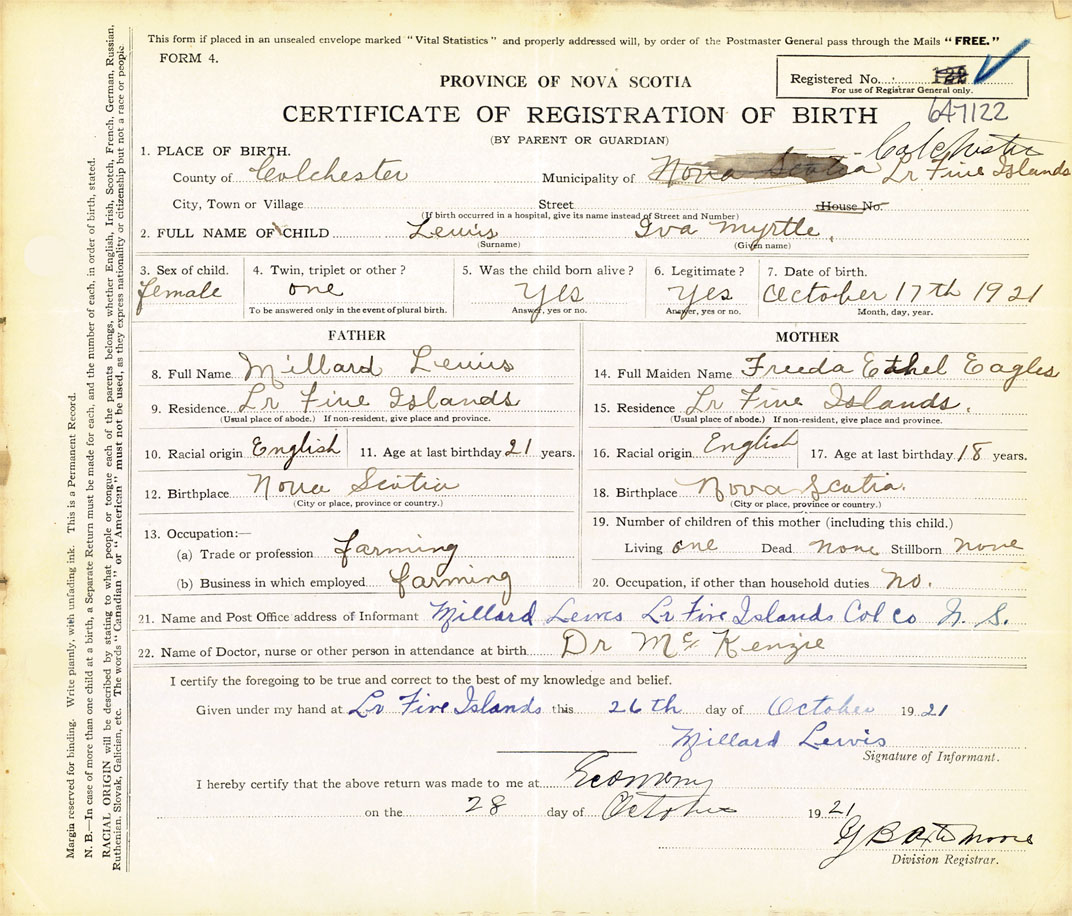 This form if placed in an unsealed envelope marked "Vital Statistics" and properly addressed will, by order of the Postmaster General pass through the Mails "FREE."
FORM 4.
PROVINCE OF NOVA SCOTIA
Registered No. 122
For use of Registrar General only.
647122
CERTIFICATE OF REGISTRATION OF BIRTH
(BY PARENT OR GUARDIAN)
1. PLACE OF BIRTH.
Colchester
County of Colchester Municipality of Nova Scotia Lr Five Islands
City, Town or Village Street House No.
(If birth occurred in a hospital, give its name instead of Street and Number)
2. FULL NAME OF CHILD Lewis Iva Myrtle
(Surname) (Given name)
3. Sex of child. 4. Twin, triplet or other? 5. Was the child born alive? 6. Legitimate? 7. Date of birth.
female one Yes Yes October 17th 1921
To be answered only in the event of plural birth. Answer, yes or no. Answer, yes or no. Month, day, year.
FATHER
8. Full Name Millard Lewis
9. Residence Lr Five Islands
(Usual place of abode.) If non-resident, give place and province.
10. Racial origin English 11. Age at last birthday 21 years.
12. Birthplace Nova Scotia
(City or place, province or country.)
13. Occupation:—
(a) Trade or profession farming
(b) Business in which employed farming
MOTHER
14. Full Maiden Name Freeda Ethel Eagles
15. Residence Lr Five Islands.
(Usual place of abode.) If non-resident, give place and province.
16. Racial origin English 17. Age at last birthday 18 years.
18. Birthplace Nova Scotia.
(City or place, province or country.)
19. Number of children of this mother (including this child.)
Living one Dead none Stillborn none
20. Occupation, if other than household duties no.
21. Name and Post Office address of Informant Millard Lewis Lr Five Islands Col Co N. S.
22. Name of Doctor, nurse or other person in attendance at birth Dr McKenzie
I certify the foregoing to be true and correct to the best of my knowledge and belief.
Given under my hand at Lr Five Islands this 26th day of October 1921
Millard Lewis
Signature of Informant.
I hereby certify that the above return was made to me at Economy
on the 28 day of October 1921
Moore
Division Registrar.
Margin reserved for binding. Write plainly, with unfading ink. This is a Permanent Record.
N. B.—In case of more than one child at a birth, a Separate Return must be made for each, and the number of each, in order of birth, stated.
RACIAL ORIGIN will be described by stating to what people or tongue each of the parents belongs, whether English, Irish, Scotch, French, German, Russian,
Ruthenian, Slovak, Galician, etc. The words "Canadian" or "American" must not be used, as they express nationality or citizenship but not a race or people.